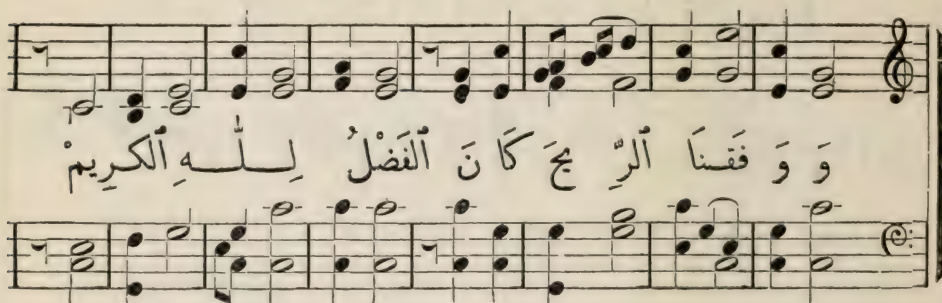 وَ وَ فَقنَا ٱلرِّ بحَ كَا نَ ٱلفَضْلُ لِلّٰهِ ٱلكَرِيمْ